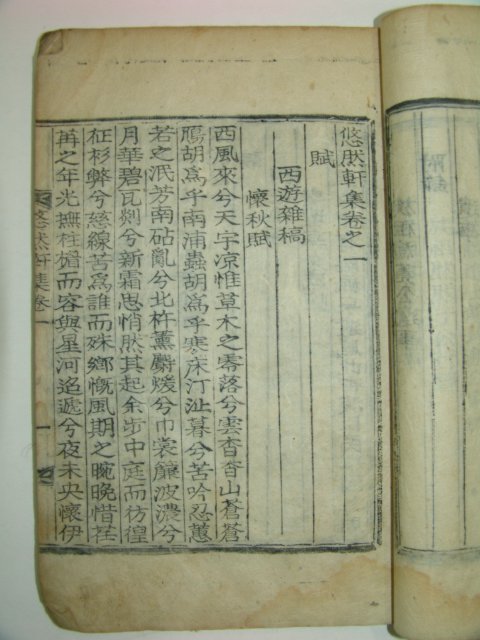 悠然軒集卷之一
賦
西遊雜稿
懷秋賦
西風來兮天宇凉惟草木之零落兮雲杳杳山蒼蒼
鴈胡爲乎南浦蟲胡爲乎寒床汀沚暮兮苦吟忍蕙
若之泯芳南砧亂兮北杵薰麝煖兮巾裳簾波濃兮
月華碧瓦剡兮新霜思悄然其起余步中庭而彷徨
征衫弊兮慈線苦爲誰而殊鄕慨風期之晼晩惜荏
苒之年光撫柱楹而容與星河迢遞兮夜未央懷伊
悠然軒集卷一
一